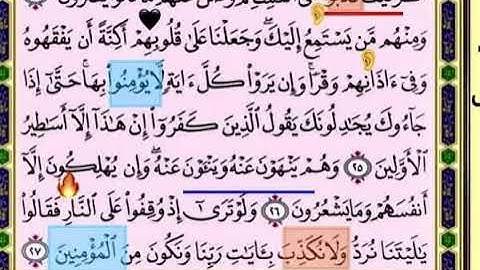 كَيْفَ كَذَبُوا۟ عَلَىٰٓ أَنفُسِهِمْ وَضَلَّ عَنْهُم مَّا كَانُوا۟ يَفْتَرُونَ
وَمِنْهُم مَّن يَسْتَمِعُ إِلَيْكَ ۖ وَجَعَلْنَا عَلَىٰ قُلُوبِهِمْ أَكِنَّةً أَن يَفْقَهُوهُ
وَفِىٓ ءَاذَانِهِمْ وَقْرًا ۚ وَإِن يَرَوْا۟ كُلَّ ءَايَةٍ لَّا يُؤْمِنُوا۟ بِهَا ۚ حَتَّىٰٓ إِذَا
جَآءُوكَ يُجَٰدِلُونَكَ يَقُولُ ٱلَّذِينَ كَفَرُوٓا۟ إِنْ هَٰذَآ إِلَّآ أَسَٰطِيرُ
ٱلْأَوَّلِينَ ٢٥ وَهُمْ يَنْهَوْنَ عَنْهُ وَيَنْـَٔوْنَ عَنْهُ ۖ وَإِن يُهْلِكُونَ إِلَّآ
أَنفُسَهُمْ وَمَا يَشْعُرُونَ ٢٦ وَلَوْ تَرَىٰٓ إِذْ وُقِفُوا۟ عَلَى ٱلنَّارِ فَقَالُوا۟
يَٰلَيْتَنَا نُرَدُّ وَلَا نُكَذِّبَ بِـَٔايَٰتِ رَبِّنَا وَنَكُونَ مِنَ ٱلْمُؤْمِنِينَ ٢٧